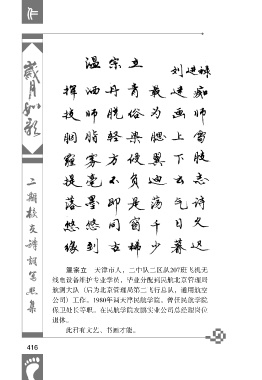 温宗立
刘建禄
挥洒丹青最迷痴
技师脱俗为画师
胭脂轻染腮上雪
寡方
提毫不负迪云志
落墨即是荡气诗
悠悠同窗千日久
缘到古稀少暮迟
温宗立 天津市人，二中队二区队207班飞机无
线电设备维护专业学员，毕业分配到民航北京管理局
航测大队（后为北京管理局第二飞行总队，通用航空
公司）工作。1980年调天津民航学院。曾任民航学院
保卫处长等职。在民航学院友鹏实业公司总经理岗位
退休。
此君有文艺、书画才能。
岁月如歌
二期校友诗词写照集
416